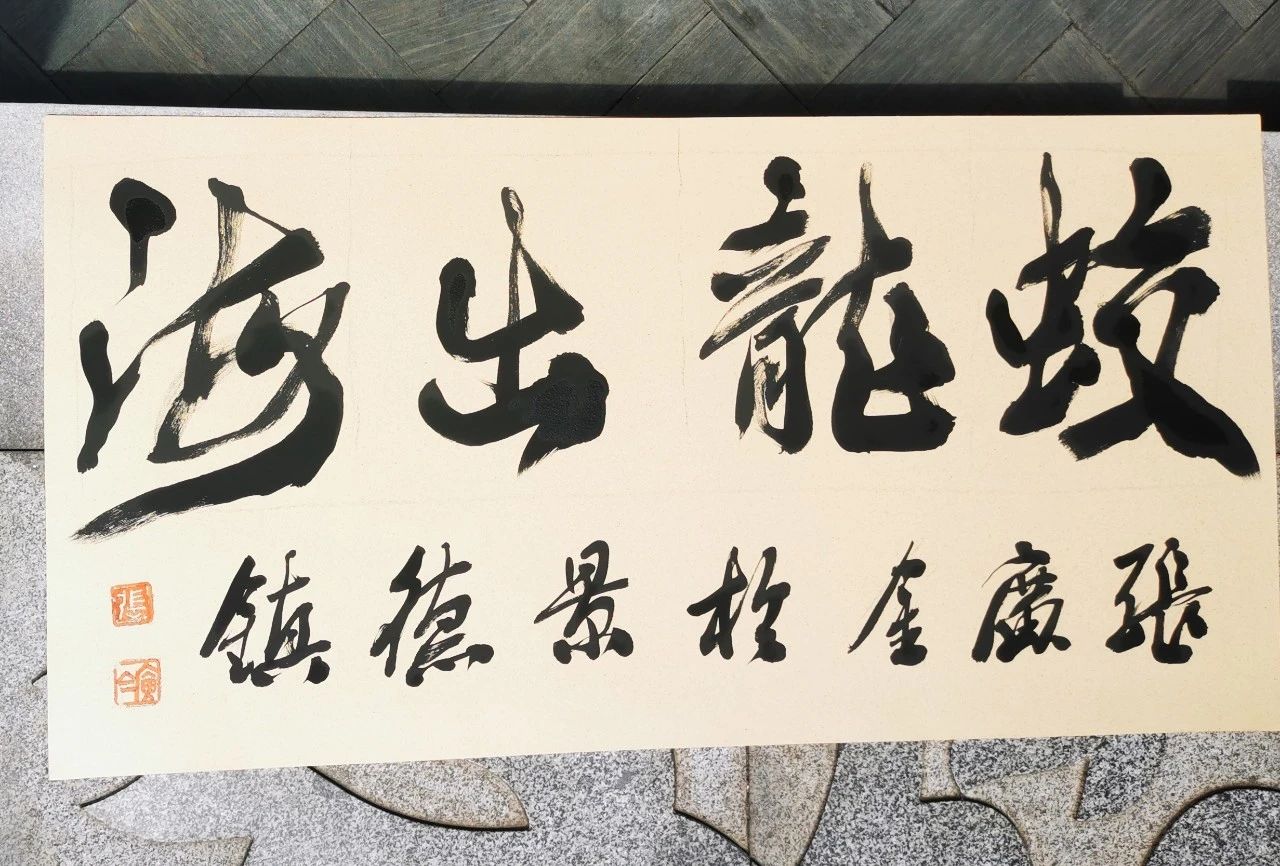 蛟龍出海
張廣金於景德鎮
張